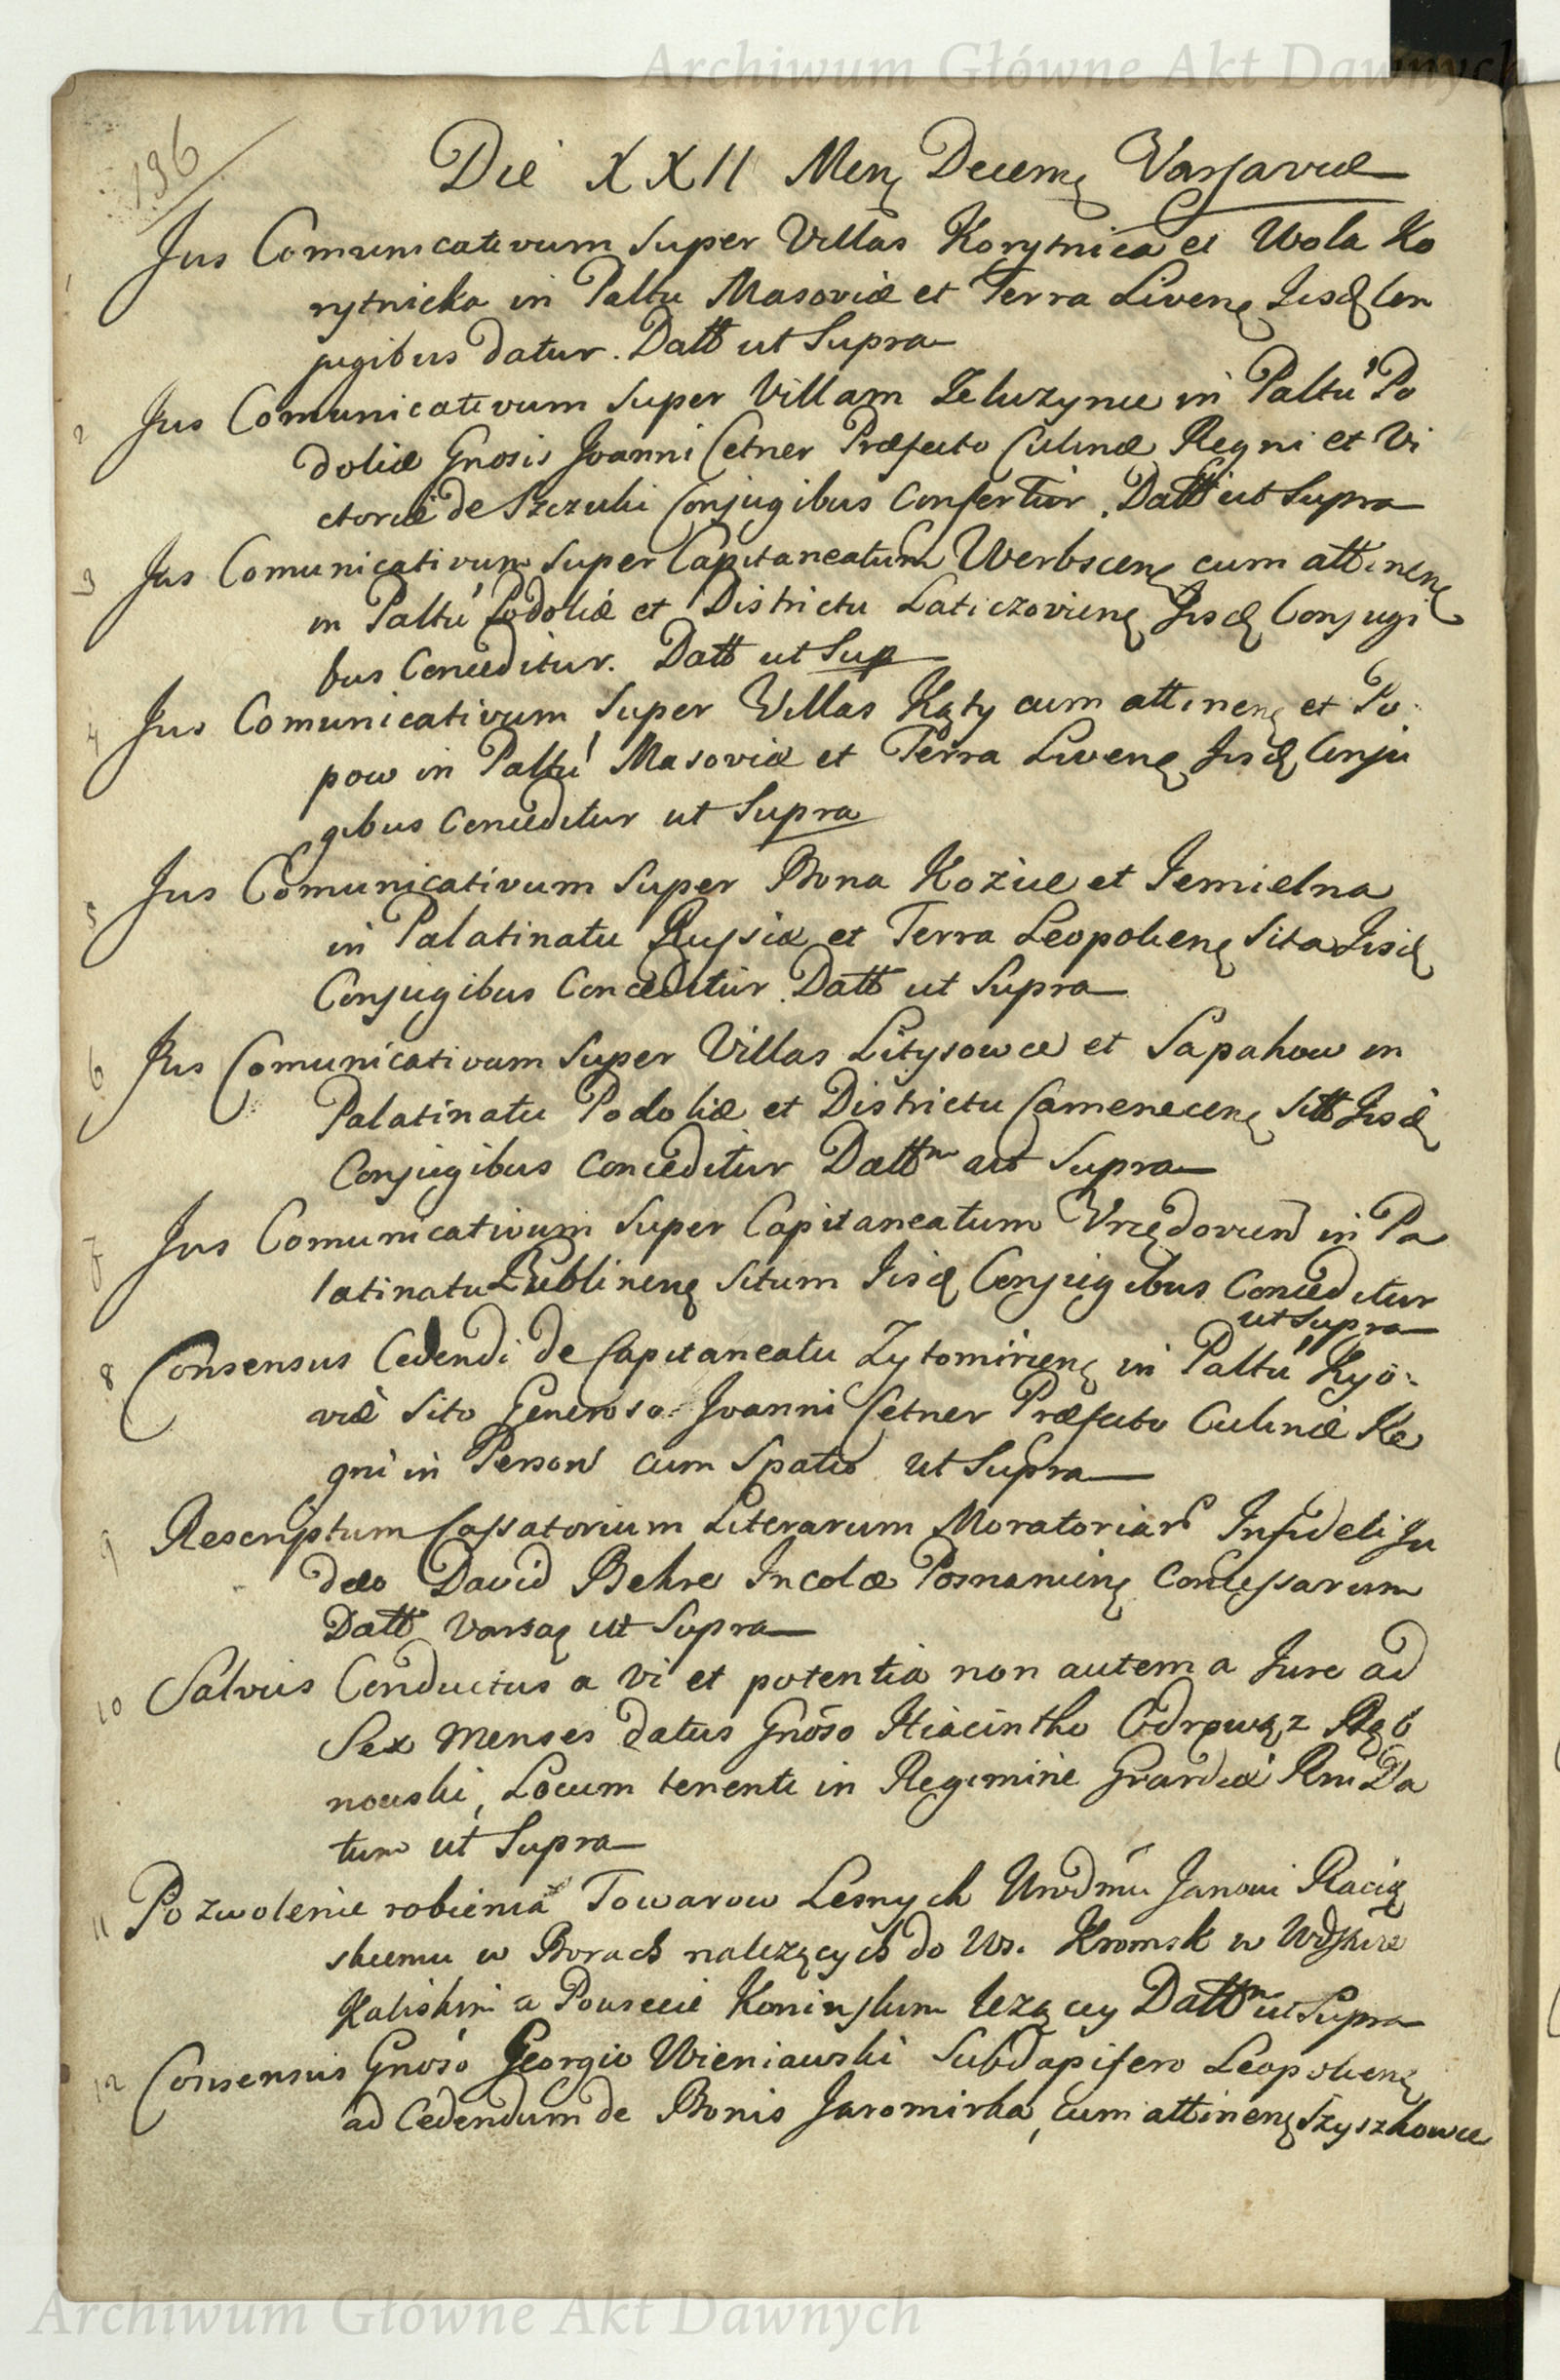 Archiwum Główne Akt Dawnych
196
Die XXII Menę Decemę Varsaviæ
1 Jus Comunicativum super Villas Korytnica et Wola Ko
rytnicka in Paltu Masoviæ et Terra Livenę Jisdę Con
jugibus datur. Datt ut Supra
2 Jus Comunicativum super Villam Zeluzynce in Paltu Po
doliæ Gnosis Joanni Cetner Præfecto Culinæ Regni et Vi
ctoriæ de Szczuki Conjugibus Confertur. Datt ut Supra
3 Jus Comunicativum super Capitaneatum Werbscenę cum attinenę
in Paltu Podoliæ et Districtu Laticzovienę Jisdę Conjugi
bus Conceditur. Datt ut Sup
4 Jus Comunicativum super Villas Kąty cum attinenę et Po
pow in Paltu Masoviæ et Terra Livenę Jisdę Conju
gibus Conceditur ut Supra
5 Jus Comunicativum super Bona Kozice et Jemielna
in Palatinatu Russiæ et Terra Leopolienę Sita Jisdę
Conjugibus Conceditur. Datt ut Supra
6 Jus Comunicativum super Villas Litysowce et Sapahow in
Palatinatu Podoliæ et Districtu Camenecenę Sitt Jisdę
Conjugibus Conceditur Dattm ut Supra
7 Jus Comunicativum super Capitaneatum Vrzędovien in Pa
latinatu Lublinenę Situm Jisdę Conjugibus Conceditur
ut Supra
8 Consensus Cedendi de Capitaneatu Zytomirienę in Paltu Kyo-
viæ Sito Generoso Joanni Cetner Præfecto Culinæ Re
gni in Person cum Spatio ut Supra
9 Rescriptum Cassatorium Literarum Moratoriar Infideli Ju
dæo David Behre Incolæ Posnanienę Concessarum
Datt Varsaę ut Supra
10 Salvus Conductus a vi et potentia non autem a Jure ad
Sex Menses datus Gnoso Hiacintho Odrowąz Rąb
nowski, Locum tenenti in Regimine Gvardiæ Rni Da
tum ut Supra
11 Pozwolenie robienia Towarow Lesnych Urodmu Janowi Racią
skiemu w Borach nalezących do Ws. Kromsk w Wdztwie
Kaliskim a Powiecie Koninskim lezący Dattm ut Supra
12 Consensus Gnoso Georgio Wieniawski Subdapifero Leopolienę
ad Cedendum de Bonis Jaromirka, cum attinenę Szyszkowce
Archiwum Główne Akt Dawnych